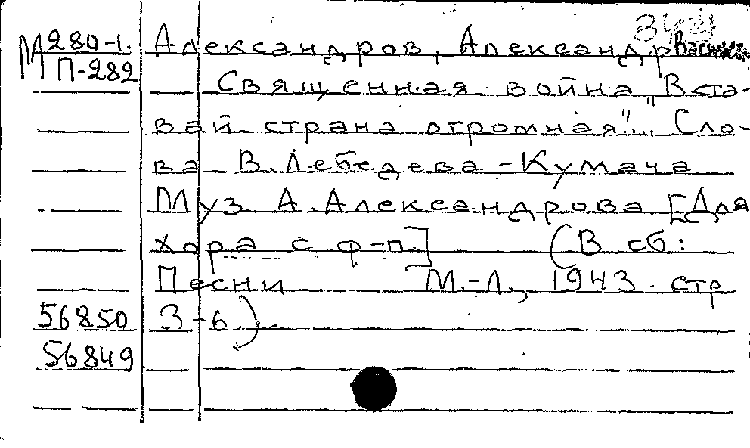 М 280-1. Александров, Александр
П-282 Священная война „Вста-
вай страна огромная". Сло-
ва В. Лебедева-Кумача
Муз А. Александрова [Для
хора с ф-п.] (В сб:
Песни М.-Л., 1943. стр
56850 3-6)
56849